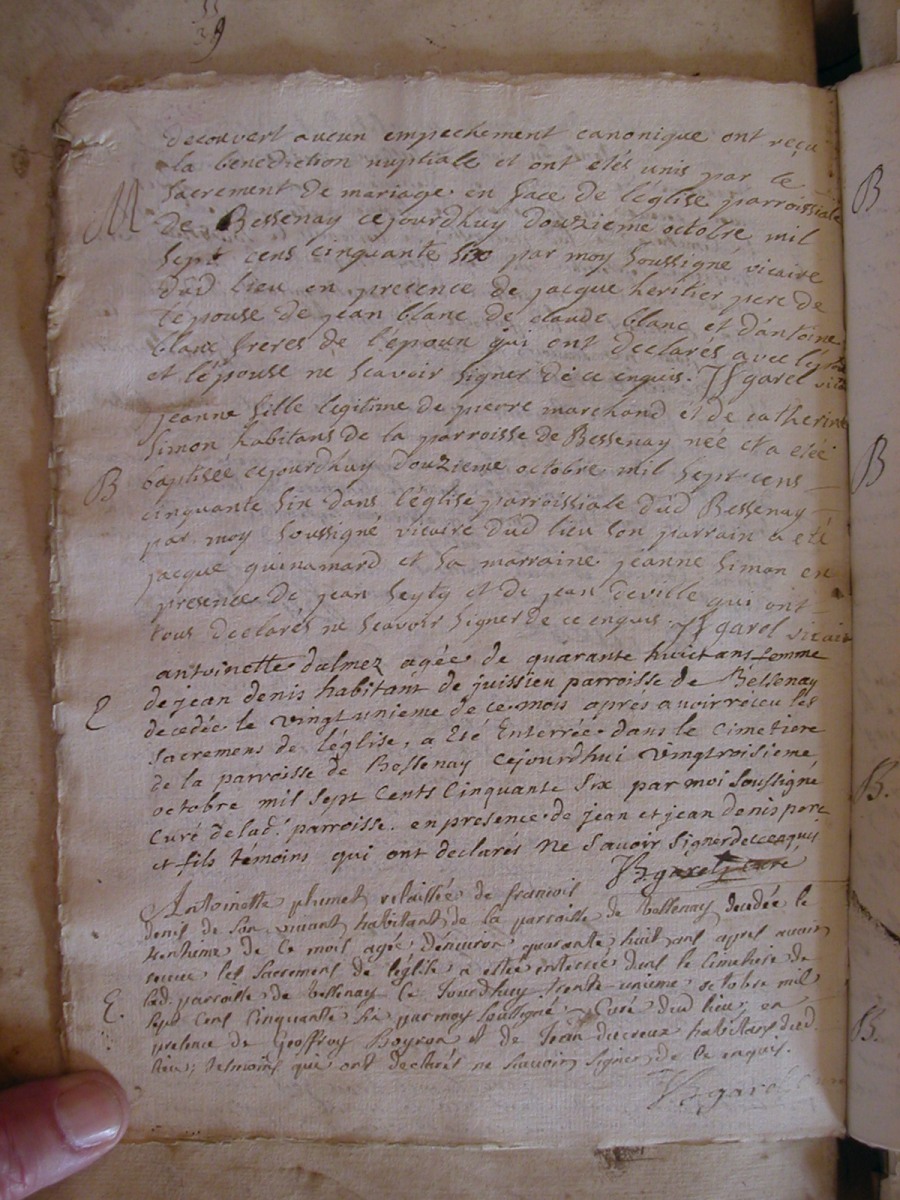 découvert aucun empechement canonique ont reçu
la benediction nuptiale et ont etés unis par le
Sacrement de mariage en face de l'église parroissiale
M
de Bessenay cejourdhuy douzieme octobre mil
sept cens cinquante six par moy soussigné vicaire
dud lieu en presence de jacque heritier pere de
l'epouse de jean blanc de claude blanc et d'antoine
blanc freres de l'epoux qui ont declarés avec l'epoux
et l'épouse ne scavoir signer de ce enquis. garel
jeanne fille legitime de pierre marchand et de catherine
Simon habitans de la parroisse de Bessenay née et a etéé
B
baptiséé cejourdhuy douzieme octobre mil sept cens
cinquante six dans l'église parroissiale dud Bessenay
par moy soussigné vicaire dud lieu son parrain a eté
jacque guinamard et sa marraine jeanne Simon en
presence de jean seyty et de jean deville qui ont
tous declarés ne scavoir signer de ce enquis. garel vicaire
antoinette dalmez agée de quarante huict ans femme
de jean denis habitant de juissieu parroisse de Bessenay
E
decedée le vingt unieme de ce mois apres avoir recu les
sacremens de l'église, a été Enterrée dans le Cimetiere
de la parroisse de Bessenay cejourdhui vingtroisieme
octobre mil sept cents Cinquante Six par moi soussigné
Curé de lad. parroisse. en presence de jean et jean denis pere
et fils témoins qui ont declarés ne Savoir signer de ce enquis
garel curé
Antoinette plumet relaissée de francois
denis de son vivant habitant de la parroisse de Bessenay decedée le
trentieme de ce mois agée d'environ quarante huit ans apres avoir
receu les sacremens de l'église a estée enterrée dans le Cimetiere de
lad. parroisse de Bessenay Ce Jourdhuy trente-unieme octobre mil
E.
sept Cens Cinquante six par moy soussigné Curé dud lieu, en
presence de Geoffroy Boyron et de Jean ducreux habitans dud
lieu, tesmoins qui ont declarés ne scavoir signer de ce enquis.
garel
B
B
B.
B.